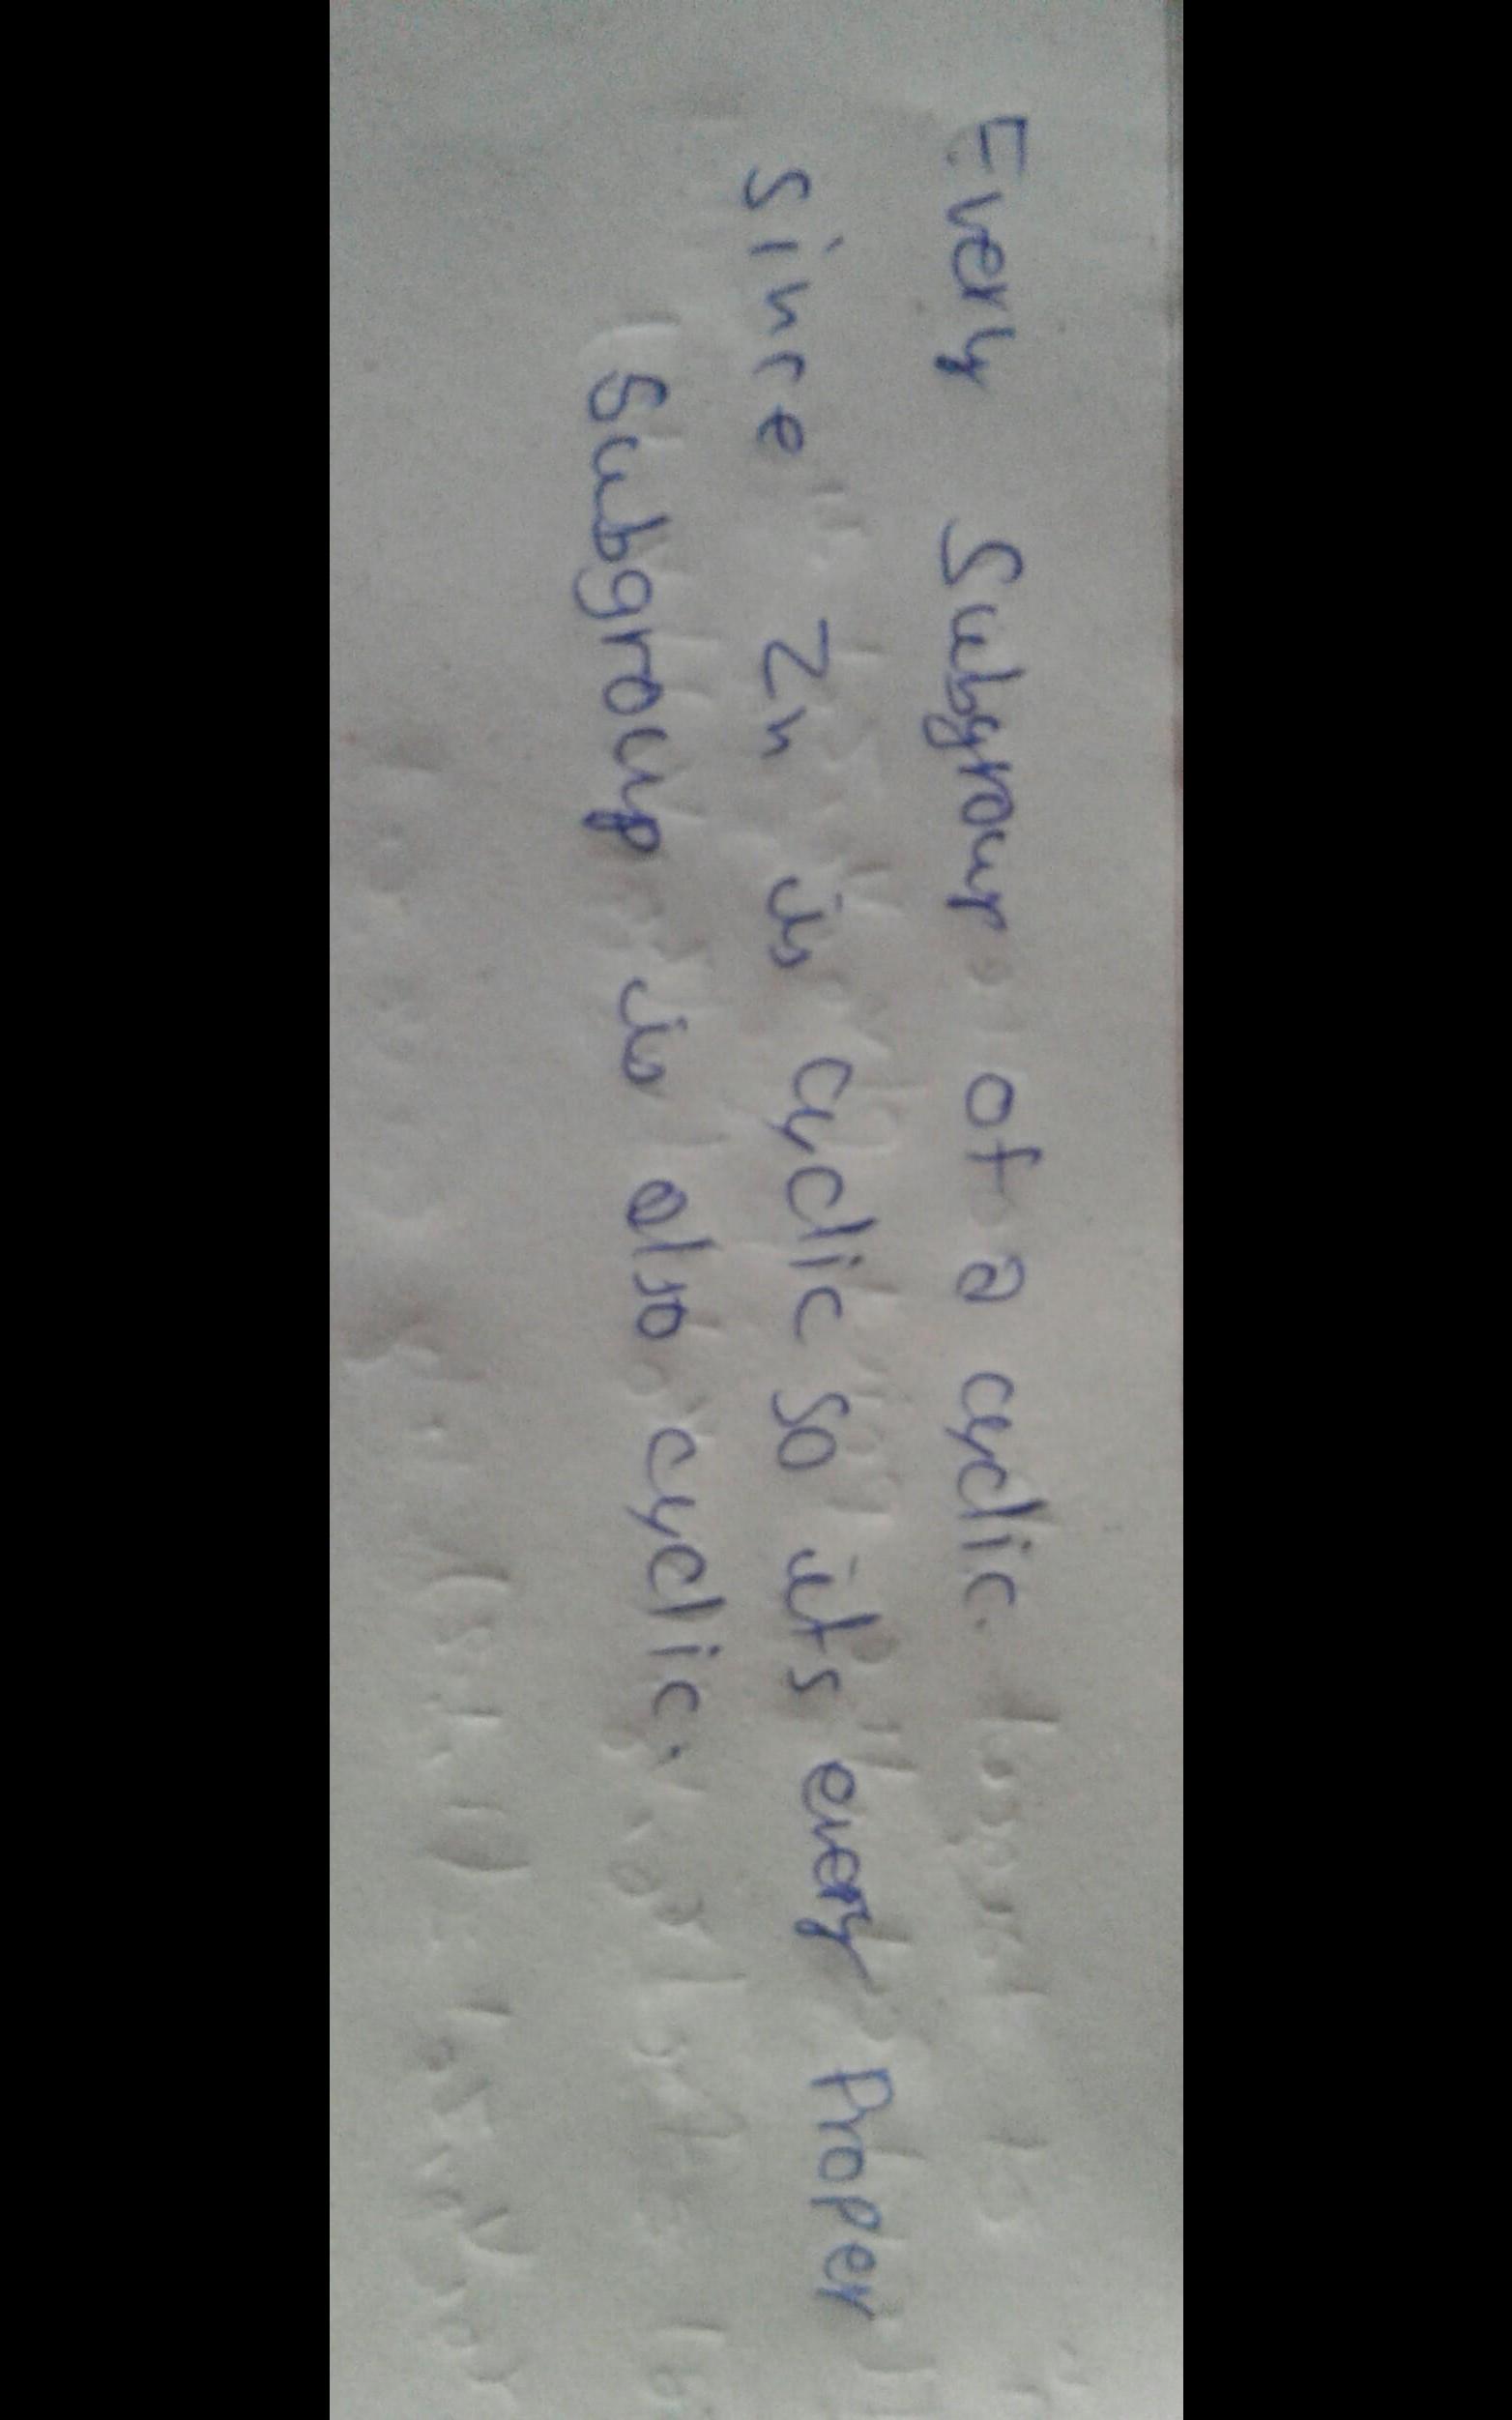 Every Subgroup of a cyclic.
Since Zn is cyclic so its every Proper
Subgroup is also cyclic.